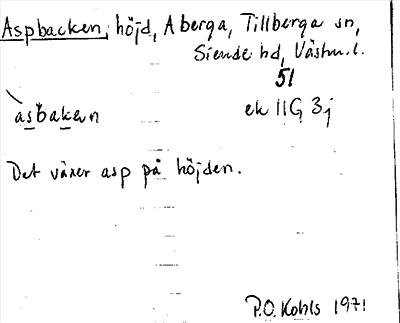 Aspbacken, höjd, Åberga, Tillberga sn,
Siende hd, Västm. l.
51
àsbaken ek 11G 3j
Det växer asp på höjden.
P.O. Kohls 1971